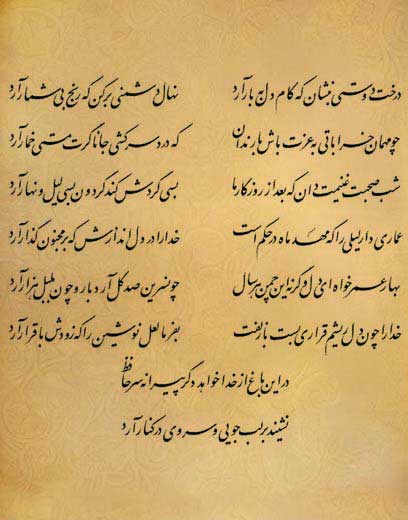 درخت دوستی بنشان که کام دل به بار آرد نهال دشمنی برکن که رنج بی شمار آرد
چو مهمان خراباتی به عزت باش با رندان که درد سر کشی جانا گرت مستی خمار آرد
شب صحبت غنیمت دان که بعد از روزگار ما بسی گردش کند گردون بسی لیل و نهار آرد
عماری دار لیلی را که مهد ماه در حکم است خدا را در دل اندازش که بر مجنون گذار آرد
بهار عمر خواه ای دل وگرنه این چمن هر سال چو نسرین صد گل آرد بار و چون بلبل هزار آرد
خدا را چون دل ریشم قراری بست با زلفت بفرما لعل نوشین را که زودش باقرار آرد
در این باغ از خدا خواهد دگر پیرانه سر حافظ
نشیند بر لب جویی و سروی در کنار آرد